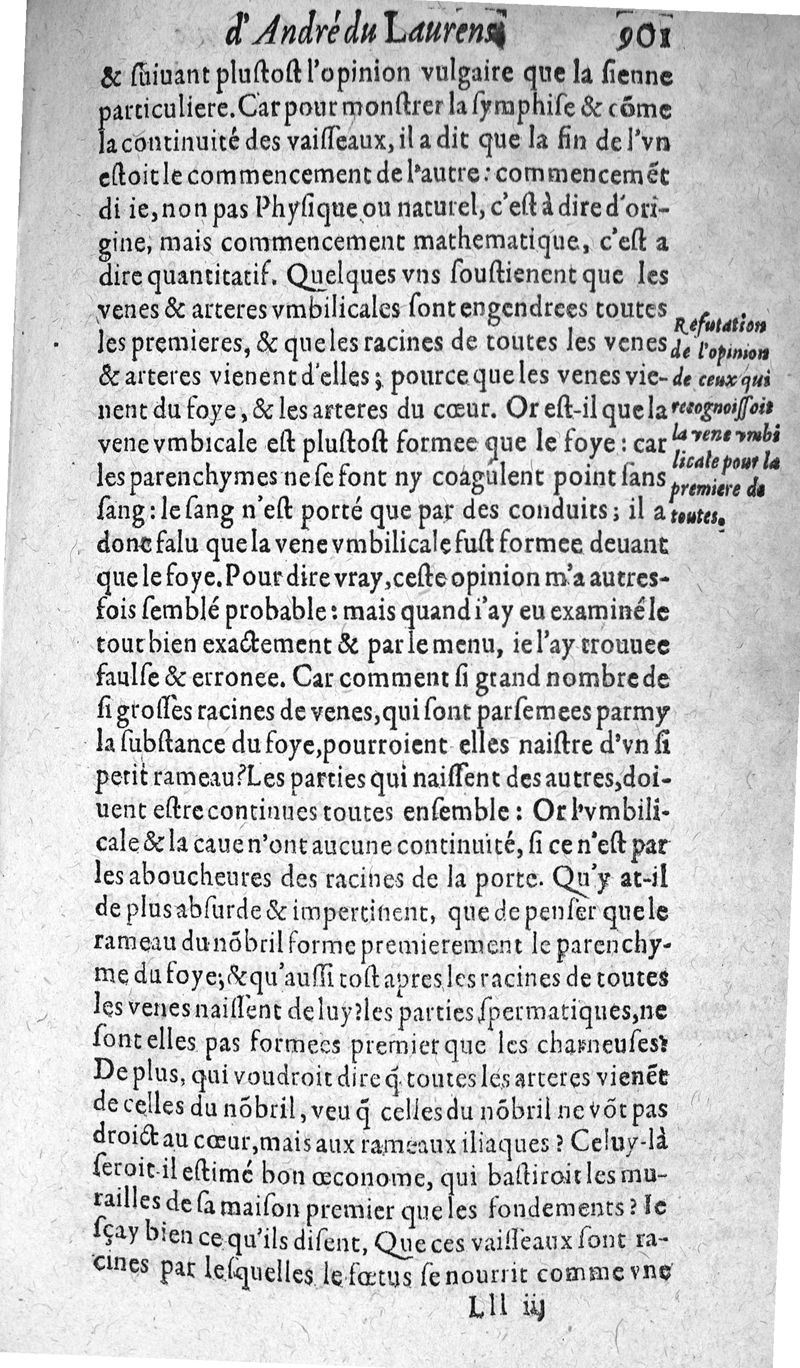 d'André du Laurens. 901
& ſuiuant pluſtoſt l'opinion vulgaire que la ſienne
particuliere. Car pour monſtrer la ſymphiſe & cõme
la continuité des vaiſſeaux, il a dit que la fin de l'vn
eſtoit le commencement de l'autre: commencemẽt
di ie, non pas Phyſique ou naturel, c'eſt à dire d'ori-
gine, mais commencement mathematique, c'eſt a
dire quantitatif. Quelques vns ſouſtienent que les
venes & arteres vmbilicales ſont engendrees toutes
les premieres, & que les racines de toutes les venes
& arteres vienent d'elles; pource que les venes vie-
nent du foye, & les arteres du cœur. Or eſt-il que la
vene vmbicale eſt pluſtoſt formee que le foye: car
les parenchymes ne ſe font ny coagulent point ſans
ſang: le ſang n'eſt porté que par des conduits; il a
donc falu que la vene vmbilicale fuſt formee deuant
que le foye. Pour dire vray, ceſte opinion m'a autres-
fois ſemblé probable: mais quand i'ay eu examiné le
tout bien exactement & par le menu, ie l'ay trouuee
faulſe & erronee. Car comment ſi grand nombre de
ſi groſſes racines de venes, qui ſont parſemees parmy
la ſubſtance du foye, pourroient elles naiſtre d'vn ſi
petit rameau? Les parties qui naiſſent des autres, doi-
uent eſtre continues toutes enſemble: Or l'vmbili-
cale & la caue n'ont aucune continuité, ſi ce n'eſt par
les aboucheures des racines de la porte. Qu'y at-il
de plus abſurde & impertinent, que de penſer que le
rameau du nõbril forme premierement le parenchy-
me du foye; & qu'auſſi toſt apres les racines de toutes
les venes naiſſent de luy? les parties ſpermatiques, ne
ſont elles pas formees premier que les charneuſes?
De plus, qui voudroit dire q̃ toutes les arteres vienẽt
de celles du nõbril, veu q̃ celles du nõbril ne võt pas
droict au cœur, mais aux rameaux iliaques? Celuy-là
ſeroit-il eſtimé bon œconome, qui baſtiroit les mu-
railles de ſa maiſon premier que les fondements? Ie
ſçay bien ce qu'ils diſent, Que ces vaiſſeaux ſont ra-
cines par leſquelles le fœtus ſe nourrit comme vne
Lll iij
Refutation
de l'opinion
de ceux qui
recognoiſſoit
la vene vmbi
licale pour la
premiere de
toutes.